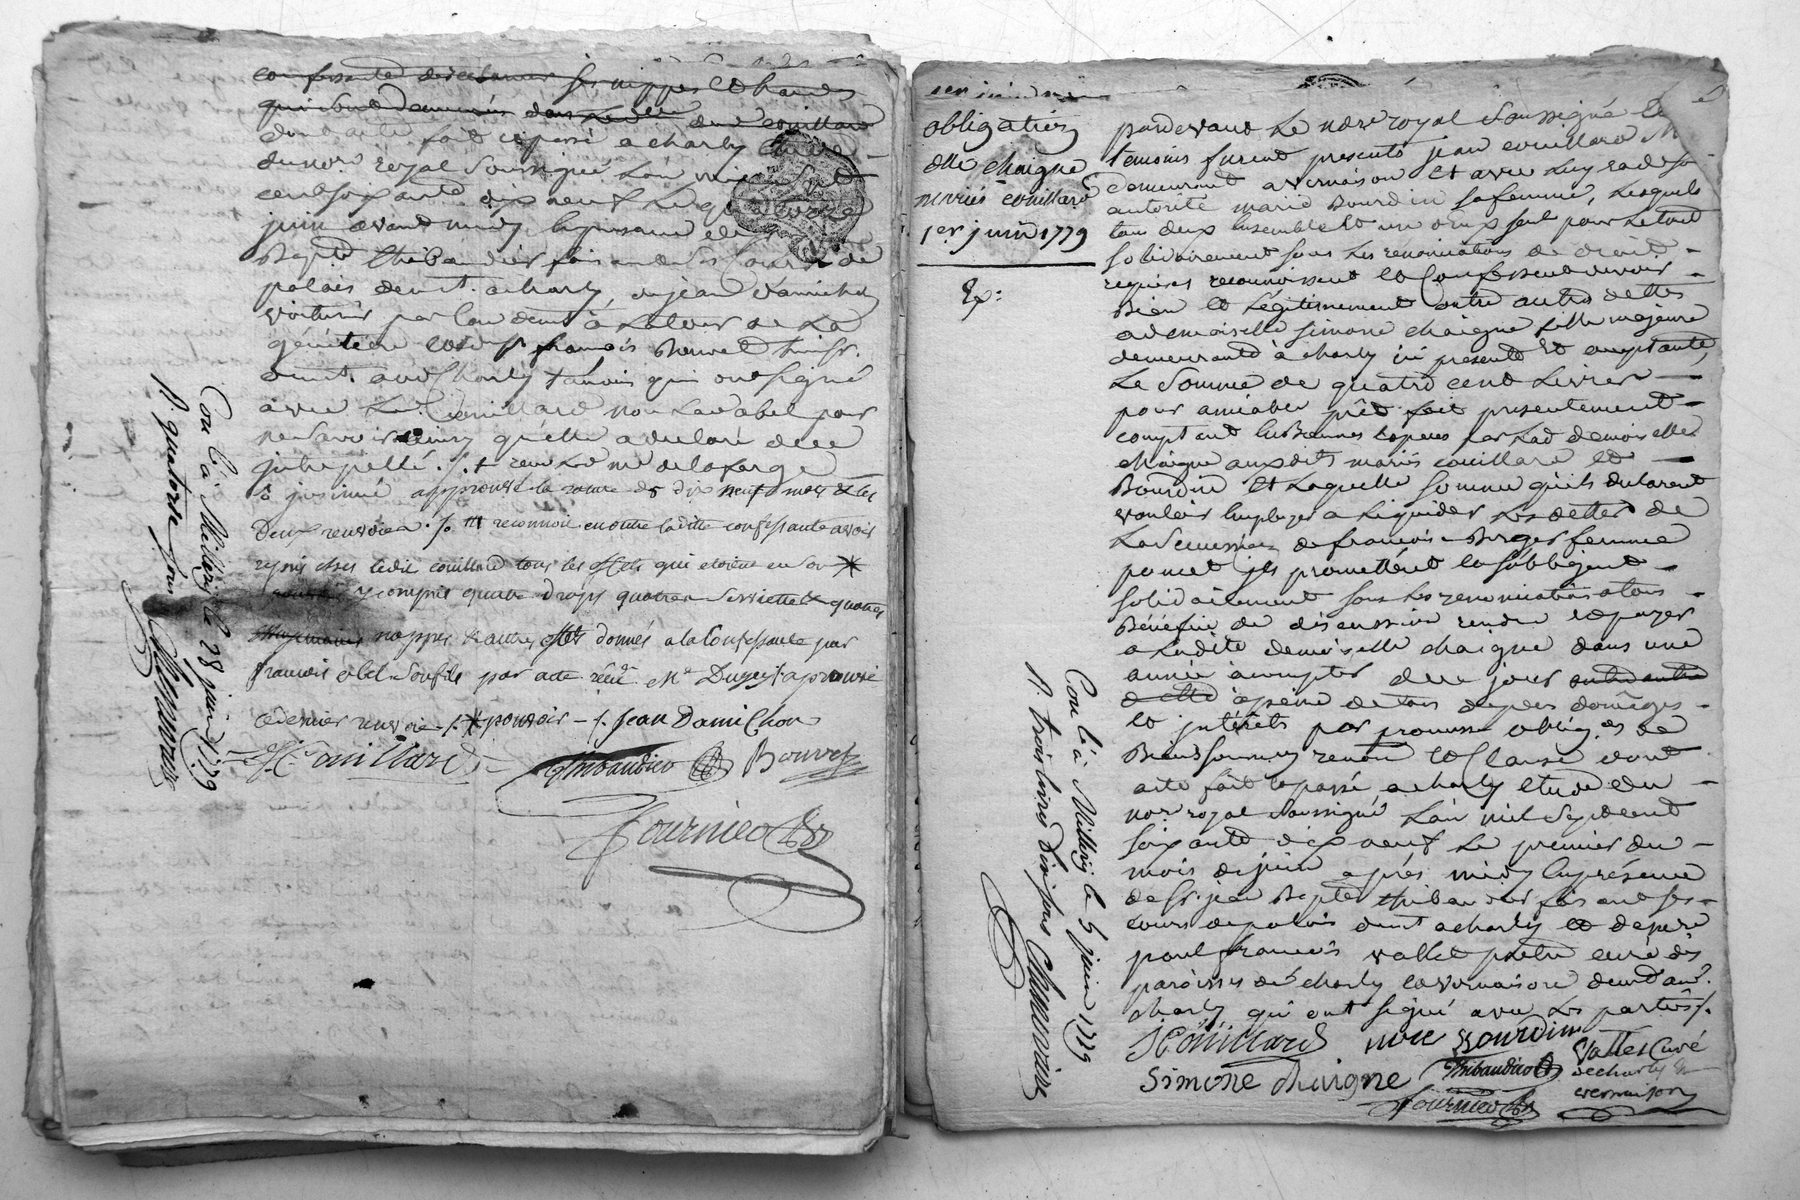 confessante de reclamer ses nippes et hardes
qui sont demeurés dans le d. couillard
dont acte fait et passé a charly étude
du no.re royal soussigné l'an mil sept
cent soixante dix neuf le quatorze
juin avant midy en presence de
Bapt.e thibaudier faisant ses cours de
palais dem.t a charly, et jean damichon
voiturier par eau dem.t à
et de s.r françois Bouvet
dem.t aud Charly temoins qui ont signé
avec le d. Couillard non lad abel pour
ne savoir ainsy qu'elle a declaré de ce
interpellé ./. + recu led m.e delafarge
approuvé la rature de dix neuf mots & les
deux renvoies ./. reconnoit en outre laditte confessante avoir
repris chés ledit couillard tous les effets qui etoient en son *
y compris quatre draps quatre serviettes quatre
nappes & autres effets donnés a la Confessante par
francois abel son fils par acte recu M.e Dugeyt approuvé
ce dernier renvoie ./. * pouvoir ./. Jean Damichon
J. Couillard Thibaudier Bouvet
Fournier
Con.lé à Millery le 28 juin 1779
R. quatorze sous
obligation
d.lle chaigne
mariés couillard
1.er juin 1779
Ex:
pardevant le no.re royal soussigné et
temoins furent presents jean couillard
demeurant a vernaison et avec luy et de son
autorité marie Bourdin sa femme, lesquels
tou deux ensemble et un deux seul pour le tout
solidairement sous les renonciations de droit
requises reconnoissent et Confessent devoir
Bien et légitimement entre autres dettes
a demoiselle simone chaigne fille majeure
demeurante à charly ici presente et acceptante,
la somme de quatre cent livres
pour amiable prêt fait presentement
comptant en Bonnes especes par lad demoiselle
chaigne auxdits mariés couillard et
Bourdin et laquelle somme qu'ils declarent
vouloir employer a liquider les dettes de
la succession de francois Berger femme
poncet ils promettent et s'obligent
solidairement sous les renonciations a tous
Bénéfice de discussion rendre et payer
a ladite demoiselle chaigne dans une
année à compter de ce jour
à peine de tous depens domages
et intérêts par promesse oblig.on de
Biens soumis.on renon et Clause dont
acte fait et passé a charly etude du
no.re royal soussigné l'an mil sept cent
soixante dix neuf le premier du
mois de juin après midy en présence
de s.r jean Bapte thibaudier faisant ses
cours de palais dem.t a charly et de père
paul françois vallet pretre curé des
paroisses de charly et vernaison dem.t aud.
charly qui ont signé avec les parties ./.
J Couillard mie Bourdin
Simone chaigne Thibaudier Vallet Curé
de charly &
vernaison
Fournier
Con.lé à Millery le 5 juin 1779
R. trois livres dix sous